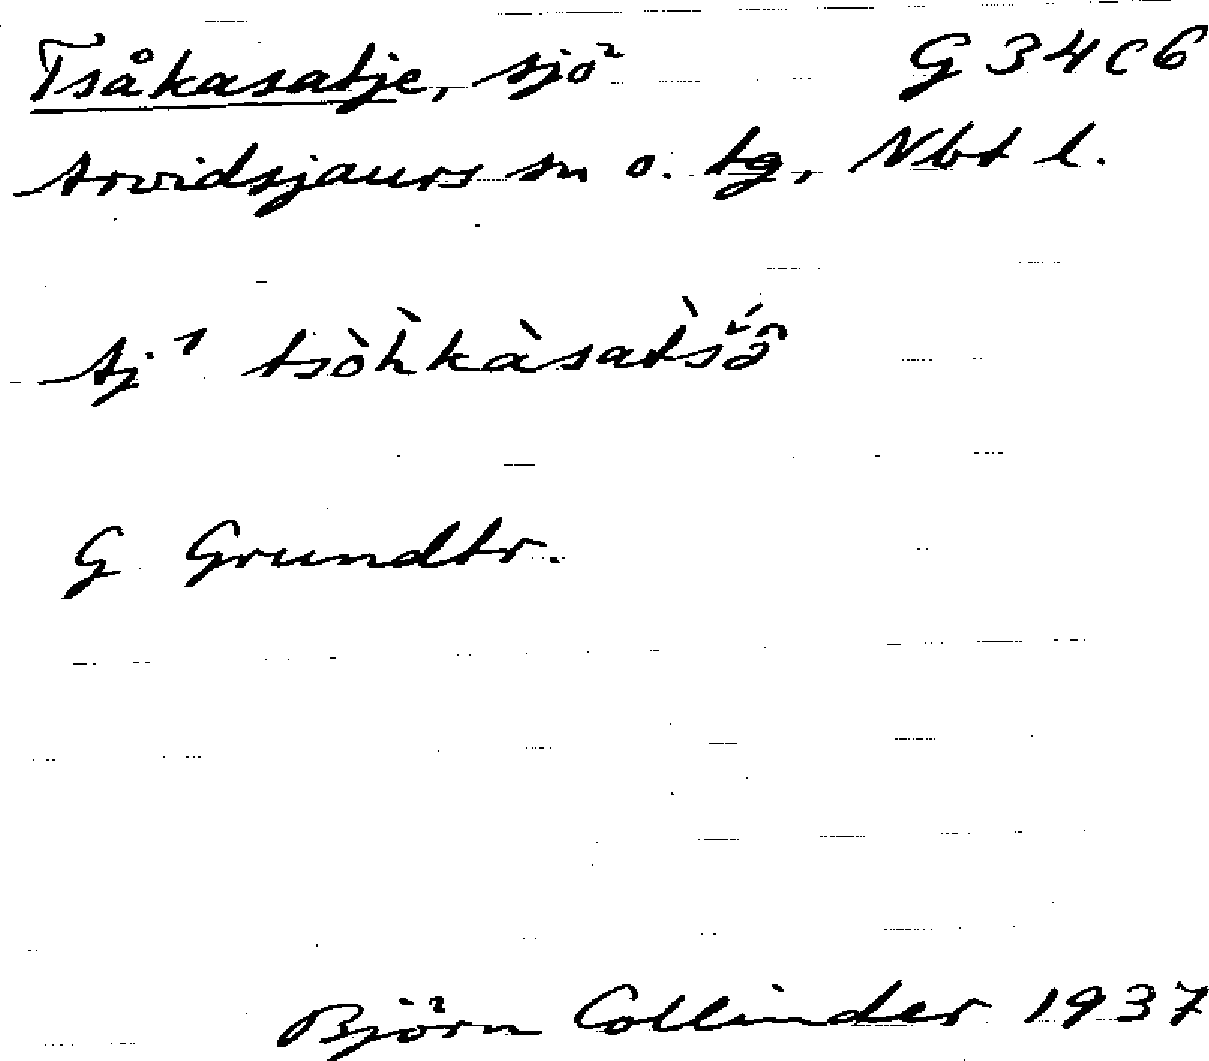 Tsåkasatje, sjö G 34 c 6
Arvidsjaurs sn o. tg, Nbt l.
Aj 1 tsòh̀kàsat̀sə̂
G Grundtr.
Björn Collinder 1937